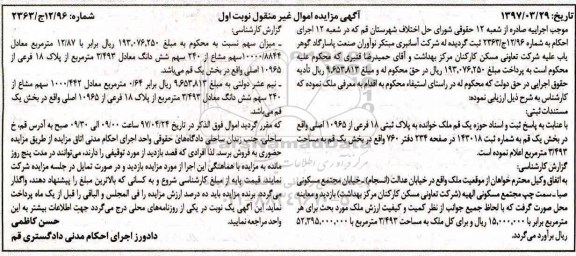 تاریخ: ۱۳۹۷/۰۳/۲۹
آگهی مزایده اموال غیر منقول نوبت اول
شماره: ۱۲/۹۶ج/۲۳۶۳
موجب اجراییه صادره از شعبه ۱۲ حقوقی شورای حل اختلاف شهرستان قم که در شعبه ۱۲ اجرای
احکام به شماره ۱۲/۹۶ج/۲۳۶۳ ثبت گردیده له شرکت آسانبری مبتکر نوآوران صنعت پاسارگاد گوهر
یاب علیه شرکت تعاونی مسکن کارکنان مرکز بهداشت و آقای حمیدرضا قنبری که محکوم علیه
محکوم است به پرداخت مبلغ ۱۹۳،۰۷۶،۲۵۰ ریال در حق محکوم له و مبلغ ۹،۶۵۳،۸۱۳ ریال تأدیه
حقوق اجرایی در حق دولت که محکوم له در راستای استیفاء محکوم به اقدام به معرفی ملک نموده که
کارشناس به شرح ذیل ارزیابی نموده:
مستندات ثبتی:
با عنایت به پاسخ ثبت و اسناد حوزه یک قم ملک خوانده به پلاک ثبتی ۱۸ فرعی از ۱۰۹۶۵ اصلی واقع
در بخش یک قم به شماره ثبت ۱۴۳۰۱۸ در صفحه ۲۳۴ دفتر ۷۶۰ واقع در بخش یک قم به مساحت
۳/۴۹۳ مترمربع اعلام نموده است.
به اتفاق وکیل محترم خواهان از موقعیت ملک واقع در خیابان عدالت (انسجام)، خیابان مجتمع مسکونی
صبا سمت چپ مجتمع مسکونی الهیه (شرکت تعاونی مسکن کارکنان مرکز بهداشت) بازدید و معاینه
محل صورت گرفت که با لحاظ جمیع جوانب از نظر کمیت و کیفیت ارزش ملک مورد بحث برای هر
مترمربع با ۱۵،۰۰۰،۰۰۰ ریال و برای کل ملک به مساحت ۳/۴۹۳ مترمربع با ۵۲،۳۹۵،۰۰۰،۰۰۰
ریال برآورد می‌گردد.
گزارش کارشناسی:
ـ میزان سهم نسبت به محکوم به مبلغ ۱۹۳،۰۷۶،۲۵۰ ریال برابر با ۱۲/۸۷ مترمربع معادل
۱۰۰۰۰/۸۸۴۴ سهم مشاع از ۲۴۰ سهم شش دانگ معادل ۳/۴۹۳ مترمربع از پلاک ۱۸ فرعی از
۱۰۹۶۵ اصلی واقع در بخش یک قم می‌باشد.
ـ نیم عشر دولتی به مبلغ ۹،۶۵۳،۸۱۳ ریال برابر ۰/۶۴ مترمربع معادل ۱۰۰۰/۴۴۲ سهم مشاع از
۲۴۰ سهم شش دانگ معادل ۳/۴۹۳ مترمربع از پلاک ۱۸ فرعی از ۱۰۹۶۵ اصلی واقع در بخش یک
قم می‌باشد.
که مقرر گردید اموال فوق الذکر در تاریخ ۹۷/۰۴/۲۴ ساعت ۰۹/۰۰ الی ۰۹/۳۰ صبح به آدرس قم، خ
ساحلی، مجتمع اجرایی دادگاه‌های حقوقی واحد اجرای احکام مدنی اتاق مزایده از طریق مزایده
حضوری به فروش برسد. لذا افرادی که قصد بازدید از مورد توقیفی را دارند، می‌توانند در مدت پنج روز
مانده به مزایده با هماهنگی این اجرا از مورد مزایده بازدید و در صورت تمایل در جلسه مزایده شرکت
نمایند. قیمت پایه از مبلغ کارشناسی شروع و به کسانی که بالاترین مبلغ را پیشنهاد دهند، واگذار
می‌گردد. برنده مزایده باید ده درصد ارزش مزایده را فی المجلس و الباقی را قبل از یک ماه پرداخت
نماید. این آگهی یک نوبت در یکی از روزنامه‌های محلی درج می‌گردد جهت اطلاعات بیشتر به این
واحد مراجعه نمایید.
حسن کاظمی
دادورز اجرای احکام مدنی دادگستری قم